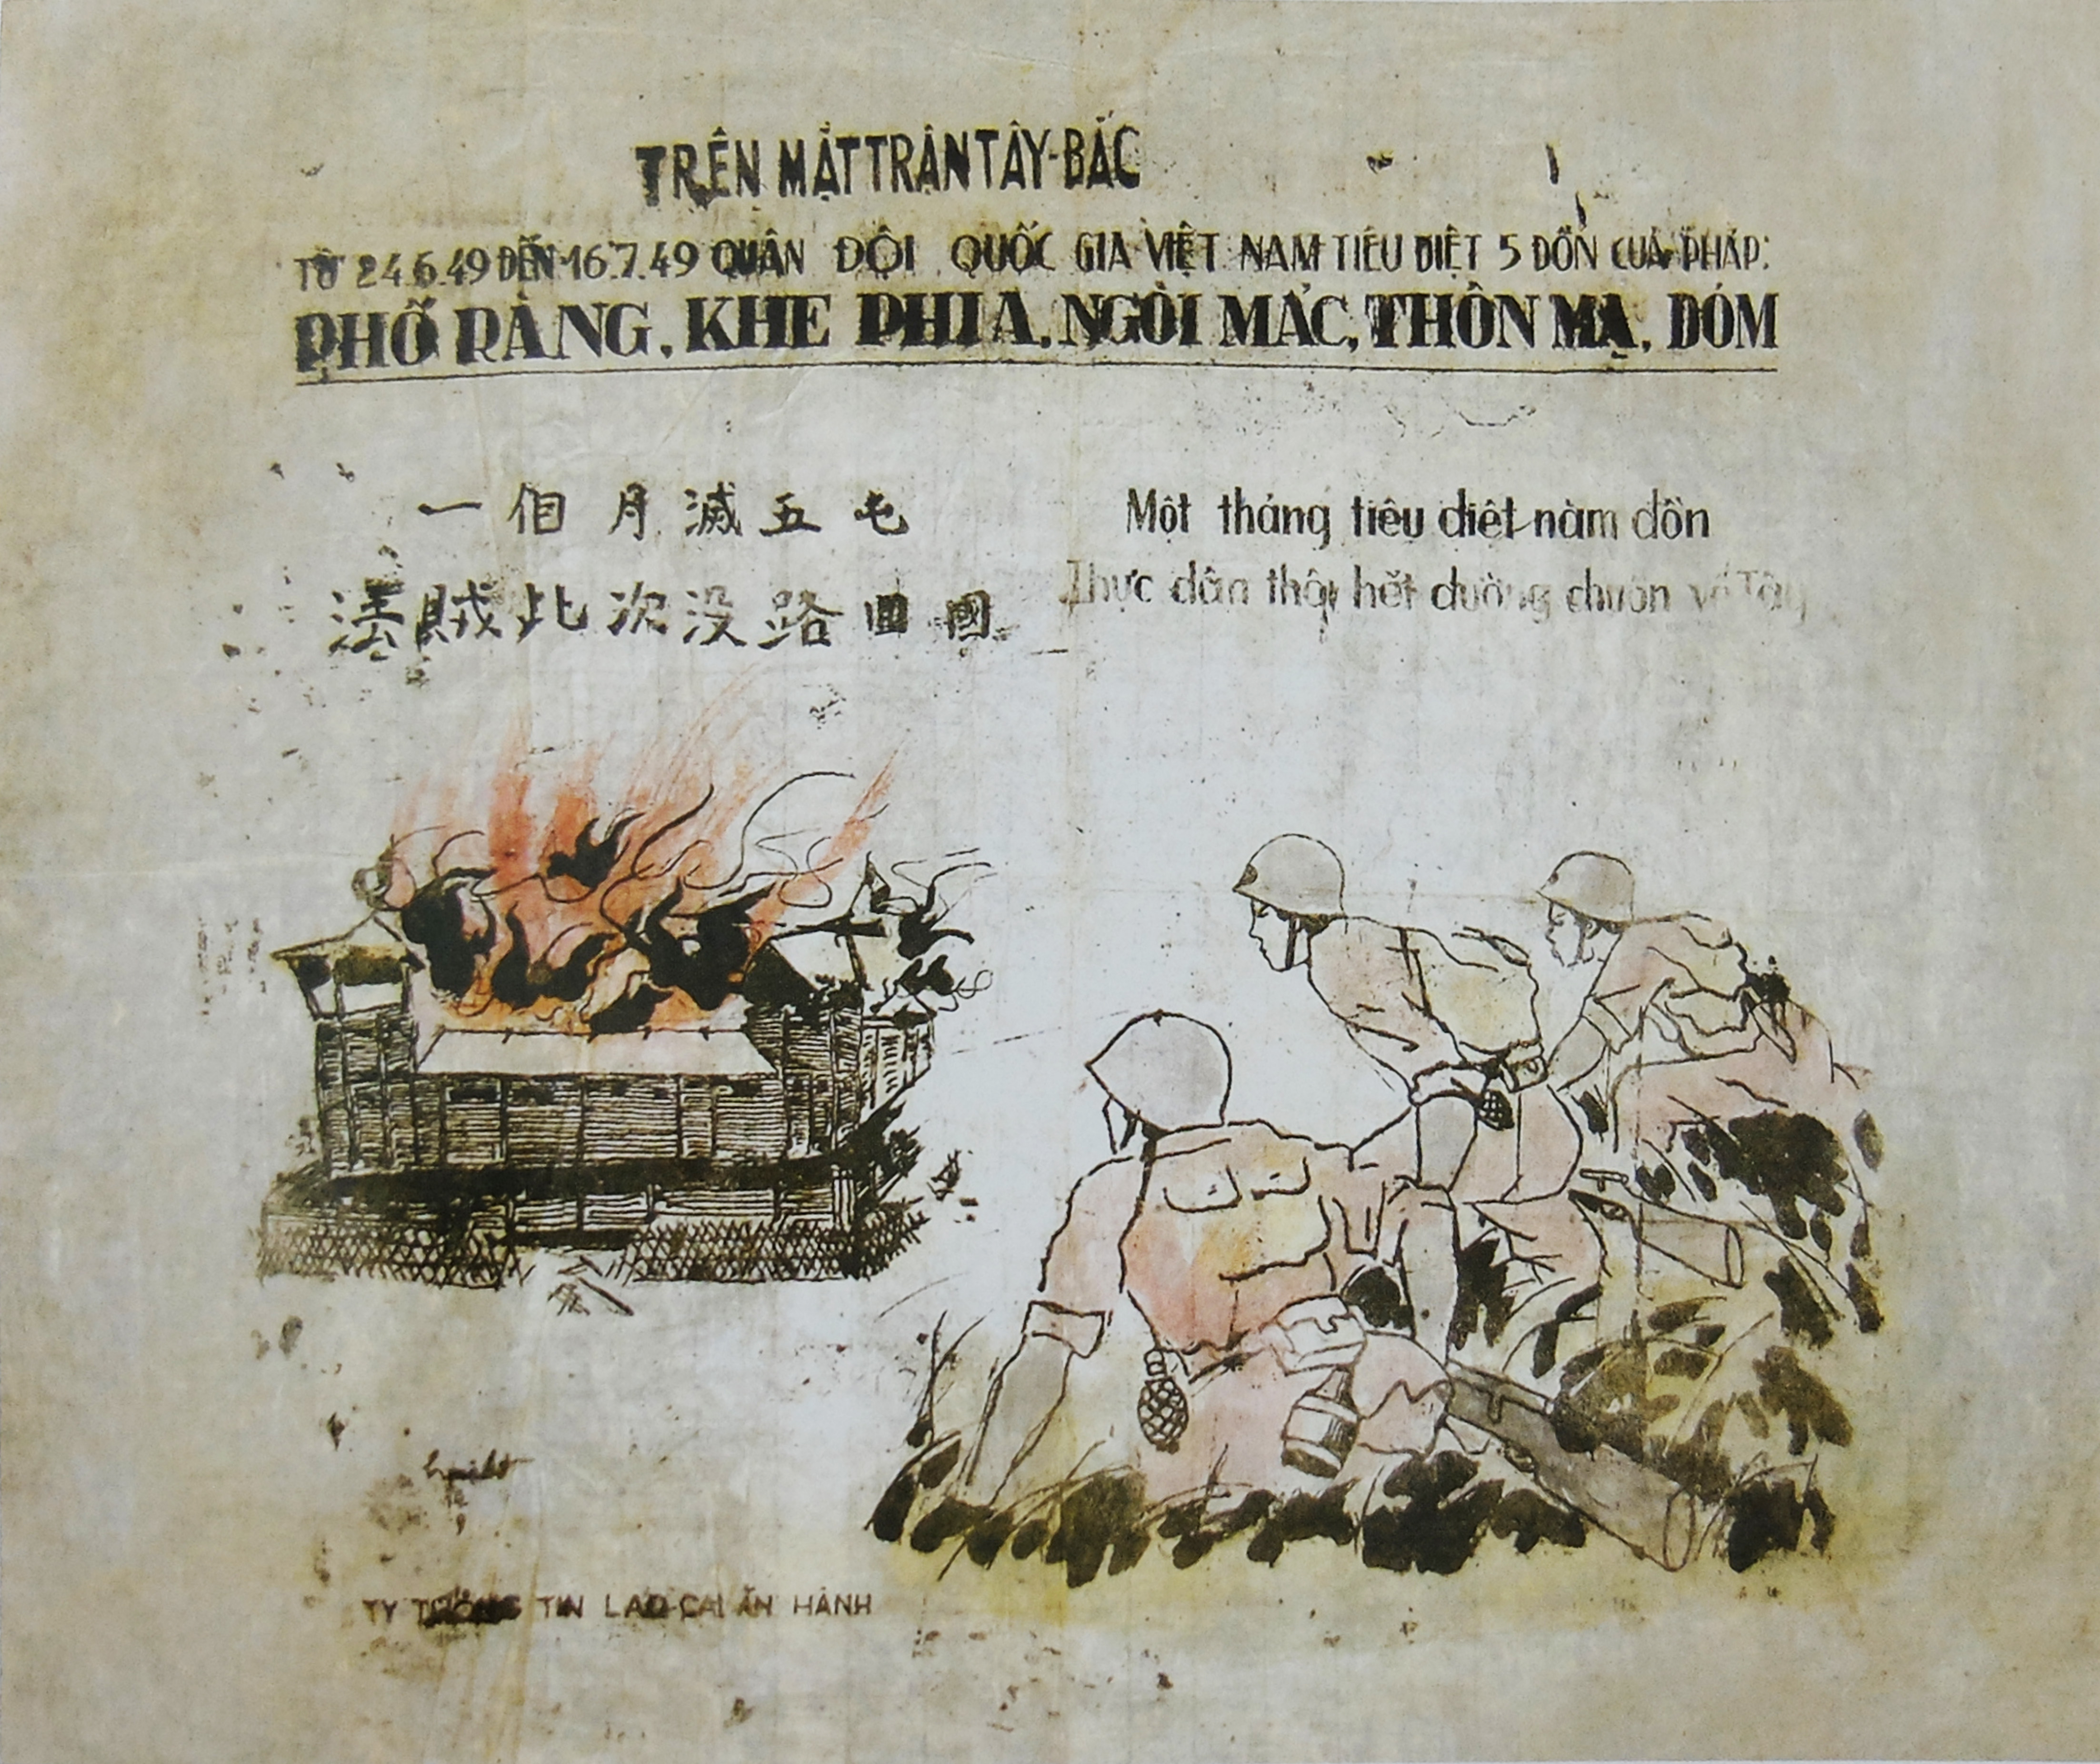 TRÊN MẶT TRẬN TÂY-BẮC
TỪ 24.6.49 ĐẾN 16.7.49 QUÂN ĐỘI QUỐC GIA VIỆT NAM TIÊU DIỆT 5 ĐỒN CỦA PHÁP:
PHỐ RÀNG, KHE PHIA, NGÒI MÁC, THÔN MẠ, DÓM
一個月滅五屯
法賊此次没路回國
Một tháng tiêu diệt năm đồn
Thực dân thôi hết đường chuồn về Tây
TY THÔNG TIN LAO-CAI ẤN HÀNH